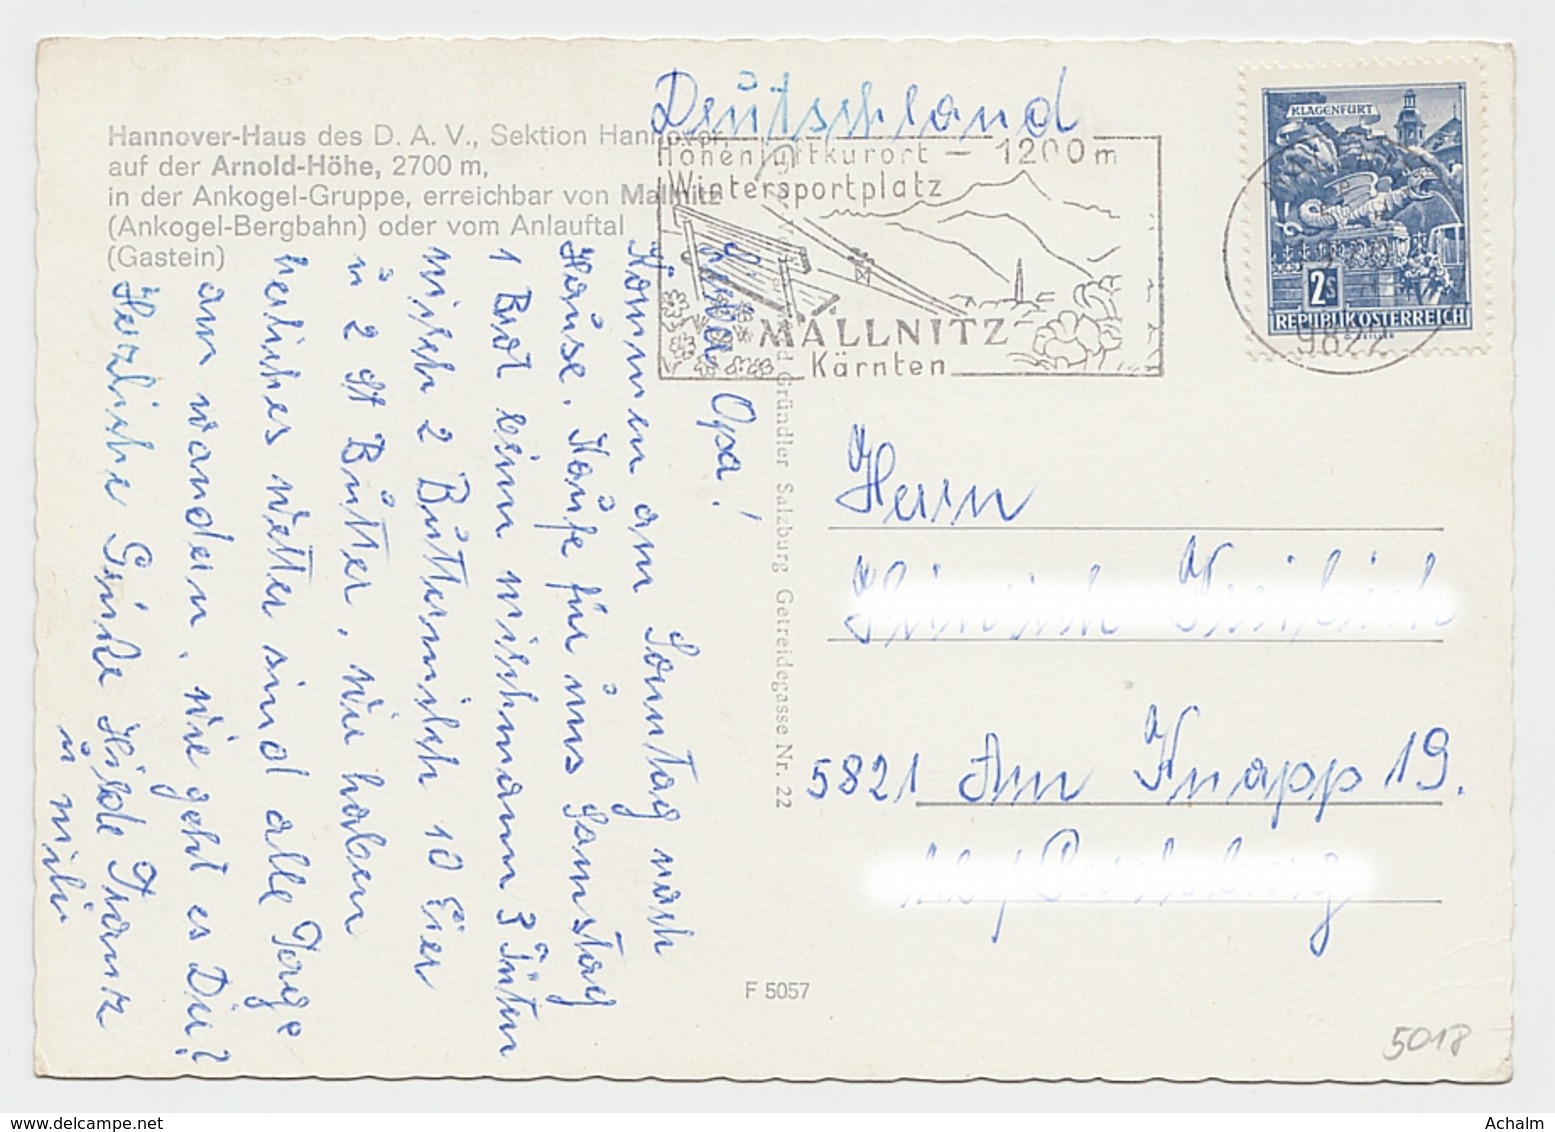 Hannover-Haus des D. A. V., Sektion Hannover,
auf der Arnold-Höhe, 2700 m,
in der Ankogel-Gruppe, erreichbar von Mallnitz
(Ankogel-Bergbahn) oder vom Anlauftal
(Gastein)
Deutschland
Höhenluftkurort – 1200 m
Wintersportplatz
MALLNITZ
Kärnten
KLAGENFURT
2s
REPUBLIK ÖSTERREICH
9822
Lieber Opa!
Kommen am Sonntag nach
Hause. Kaufe für uns Samstag
1 Brot beim Wichmann 3 Tüten
Milch 2 Buttermilch 10 Eier
u 2 St Butter, wir haben
herliches Wetter sind alle Tage
am wandern, wie geht es Dir?
Herzliche Grüße Hilde Franz
u
Gründler Salzburg Getreidegasse Nr. 22
Herrn
5821 Am Knapp 19.
F 5057
5018
Achalm